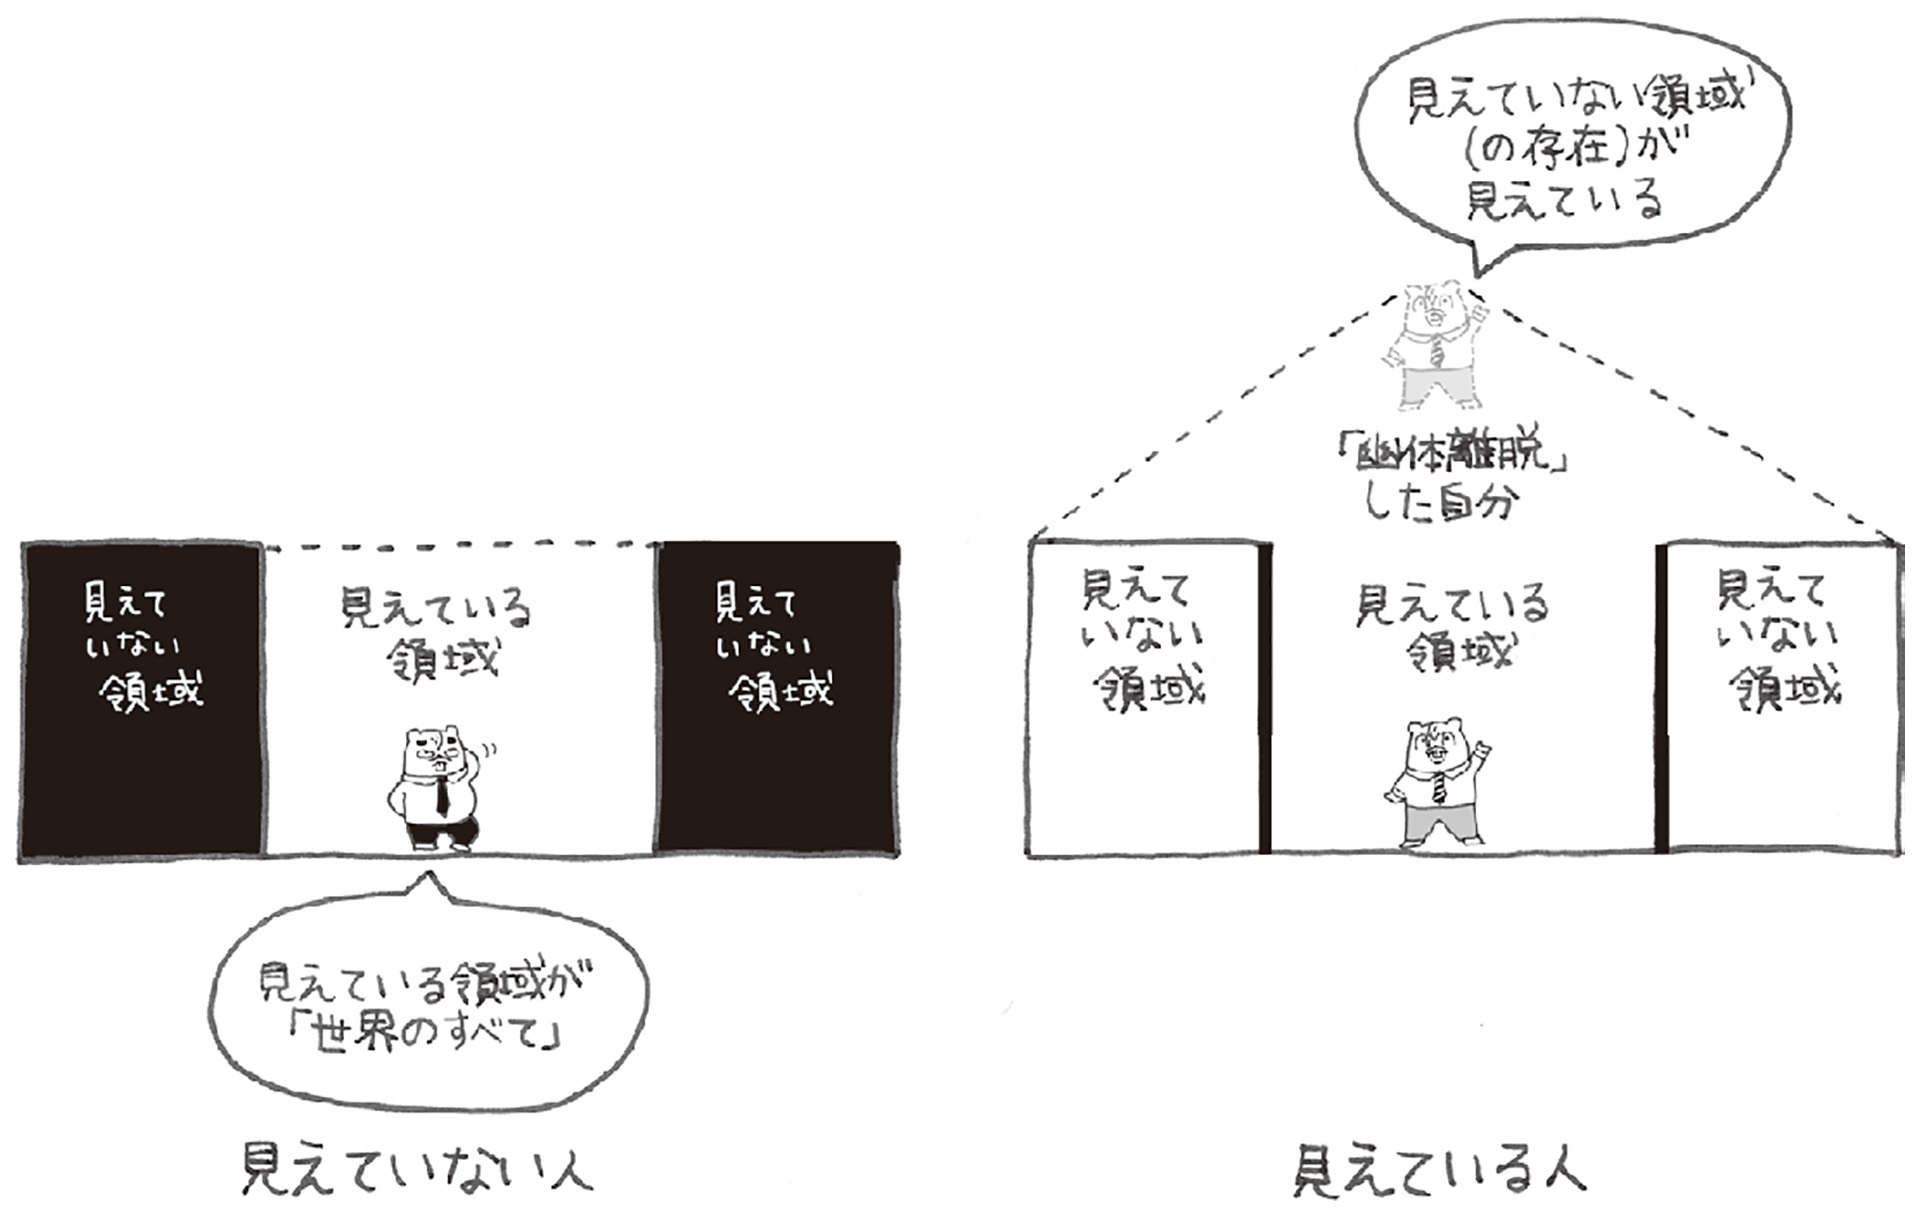 見えて
いない
領域
見えている
領域
見えて
いない
領域
見えている領域が
「世界のすべて」
見えていない人
見えていない領域
(の存在)が
見えている
「幽体離脱」
した自分
見えて
いない
領域
見えている
領域
見えて
いない
領域
見えている人